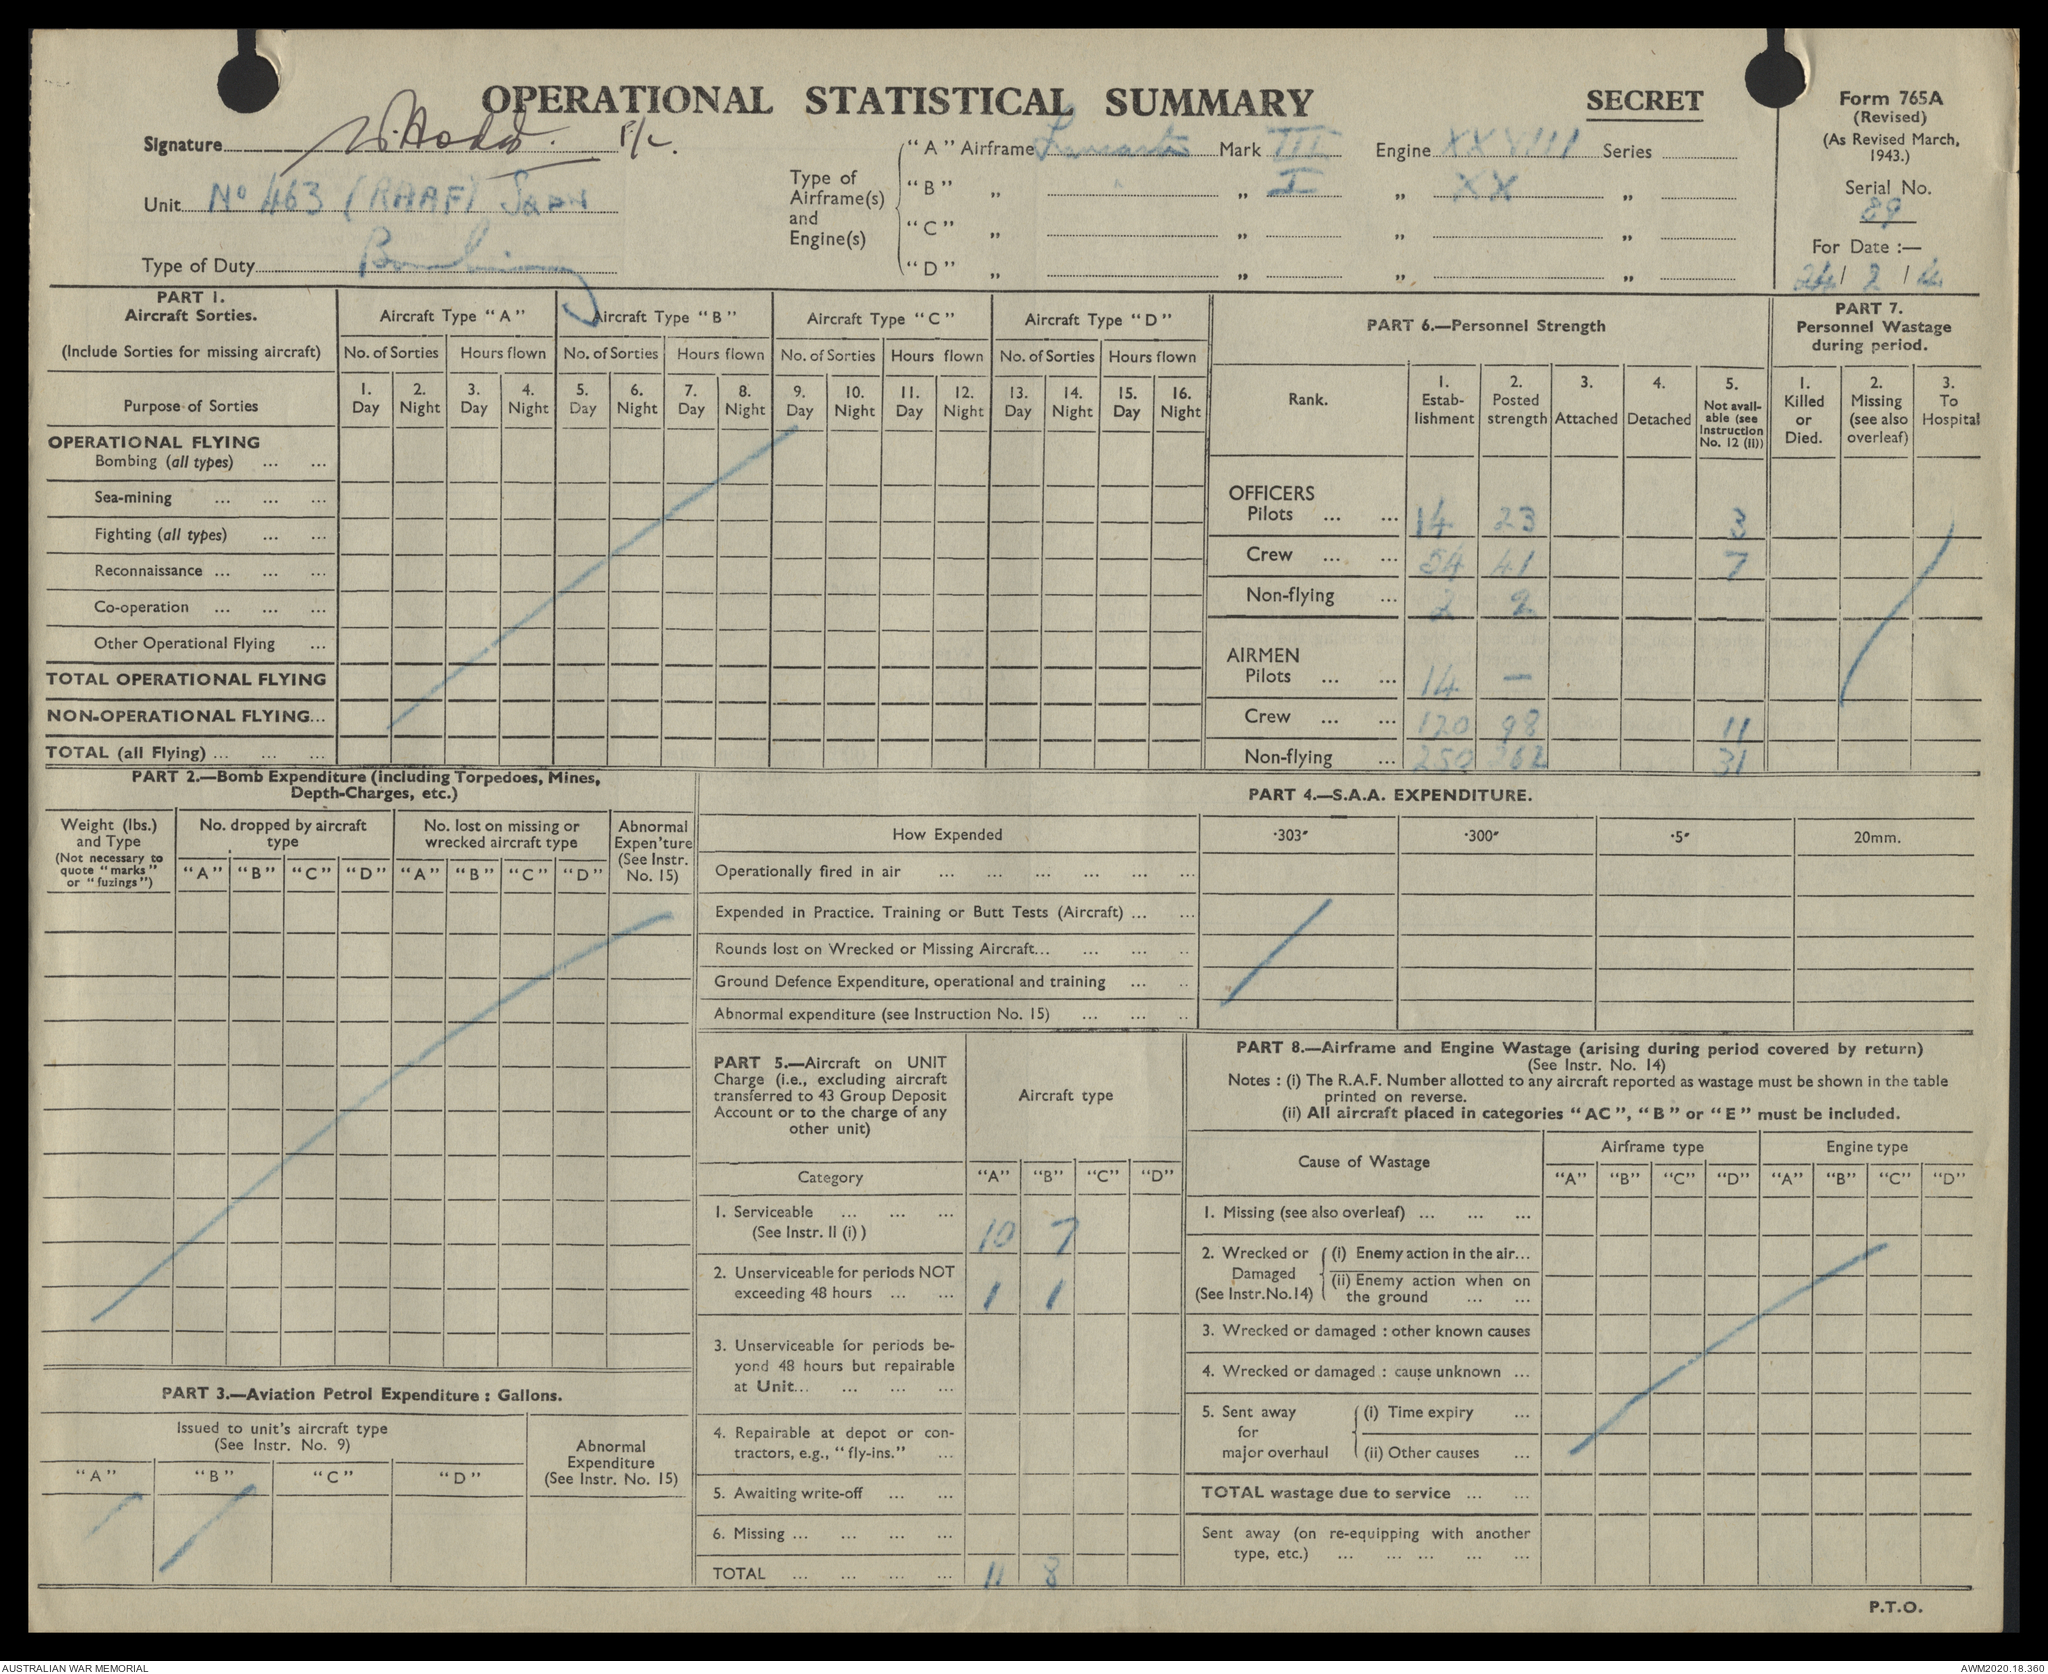 OPERATIONAL STATISTICAL SUMMARY
SECRET
Form 765A
(Revised)
(As Revised March, 1943.)
Serial No.
89
For Date :—
24 / 2 / 4
Signature F/L.
Unit No 463 (RAAF) Sqdn
Type of Duty Bombing
Type of Airframe(s) and Engine(s)
"A" Airframe Lancaster Mark III Engine XXVIII Series
"B" „ „ I „ XX „
"C" „ „ „ „
"D" „ „ „ „
PART 1.
Aircraft Sorties.
(Include Sorties for missing aircraft)
Aircraft Type "A" Aircraft Type "B" Aircraft Type "C" Aircraft Type "D"
No. of Sorties Hours flown No. of Sorties Hours flown No. of Sorties Hours flown No. of Sorties Hours flown
Purpose of Sorties
1. Day 2. Night 3. Day 4. Night 5. Day 6. Night 7. Day 8. Night 9. Day 10. Night 11. Day 12. Night 13. Day 14. Night 15. Day 16. Night
OPERATIONAL FLYING
Bombing (all types) ... ...
Sea-mining ... ... ...
Fighting (all types) ... ...
Reconnaissance ... ... ...
Co-operation ... ... ...
Other Operational Flying ...
TOTAL OPERATIONAL FLYING
NON-OPERATIONAL FLYING...
TOTAL (all Flying) ... ... ...
PART 6.—Personnel Strength
Rank.
1. Estab-lishment
2. Posted strength
3. Attached
4. Detached
5. Not avail-able (see Instruction No. 12 (II))
OFFICERS
Pilots ... ... 14 23 3
Crew ... ... 54 41 7
Non-flying ... 2 2
AIRMEN
Pilots ... ... 14 —
Crew ... ... 120 98 11
Non-flying ... 250 262 31
PART 7.
Personnel Wastage during period.
1. Killed or Died.
2. Missing (see also overleaf)
3. To Hospital
PART 2.—Bomb Expenditure (including Torpedoes, Mines, Depth-Charges, etc.)
Weight (lbs.) and Type
(Not necessary to quote "marks" or "fuzings")
No. dropped by aircraft type
No. lost on missing or wrecked aircraft type
Abnormal Expen'ture (See Instr. No. 15)
"A" "B" "C" "D" "A" "B" "C" "D"
PART 3.—Aviation Petrol Expenditure : Gallons.
Issued to unit's aircraft type
(See Instr. No. 9)
Abnormal Expenditure (See Instr. No. 15)
"A" "B" "C" "D"
PART 4.—S.A.A. EXPENDITURE.
How Expended ·303″ ·300″ ·5″ 20mm.
Operationally fired in air ... ... ... ... ... ...
Expended in Practice. Training or Butt Tests (Aircraft) ... ...
Rounds lost on Wrecked or Missing Aircraft... ... ... ..
Ground Defence Expenditure, operational and training ... ..
Abnormal expenditure (see Instruction No. 15) ... ... ..
PART 5.—Aircraft on UNIT
Charge (i.e., excluding aircraft
transferred to 43 Group Deposit
Account or to the charge of any
other unit)
Aircraft type
Category "A" "B" "C" "D"
1. Serviceable ... ... ...
(See Instr. II (i) ) 10 7
2. Unserviceable for periods NOT
exceeding 48 hours ... ... 1 1
3. Unserviceable for periods be-
yond 48 hours but repairable
at Unit... ... ... ...
4. Repairable at depot or con-
tractors, e.g., "fly-ins." ...
5. Awaiting write-off ... ...
6. Missing ... ... ... ...
TOTAL ... ... ... ... 11 8
PART 8.—Airframe and Engine Wastage (arising during period covered by return)
(See Instr. No. 14)
Notes : (i) The R.A.F. Number allotted to any aircraft reported as wastage must be shown in the table
printed on reverse.
(ii) All aircraft placed in categories "AC", "B" or "E" must be included.
Cause of Wastage
Airframe type Engine type
"A" "B" "C" "D" "A" "B" "C" "D"
1. Missing (see also overleaf) ... ... ...
2. Wrecked or Damaged (See Instr.No.14)
(i) Enemy action in the air...
(ii) Enemy action when on the ground ... ...
3. Wrecked or damaged : other known causes
4. Wrecked or damaged : cause unknown ...
5. Sent away for major overhaul
(i) Time expiry ...
(ii) Other causes ...
TOTAL wastage due to service ... ...
Sent away (on re-equipping with another
type, etc.) ... ... ... ... ...
P.T.O.
AUSTRALIAN WAR MEMORIAL
AWM2020.18.360